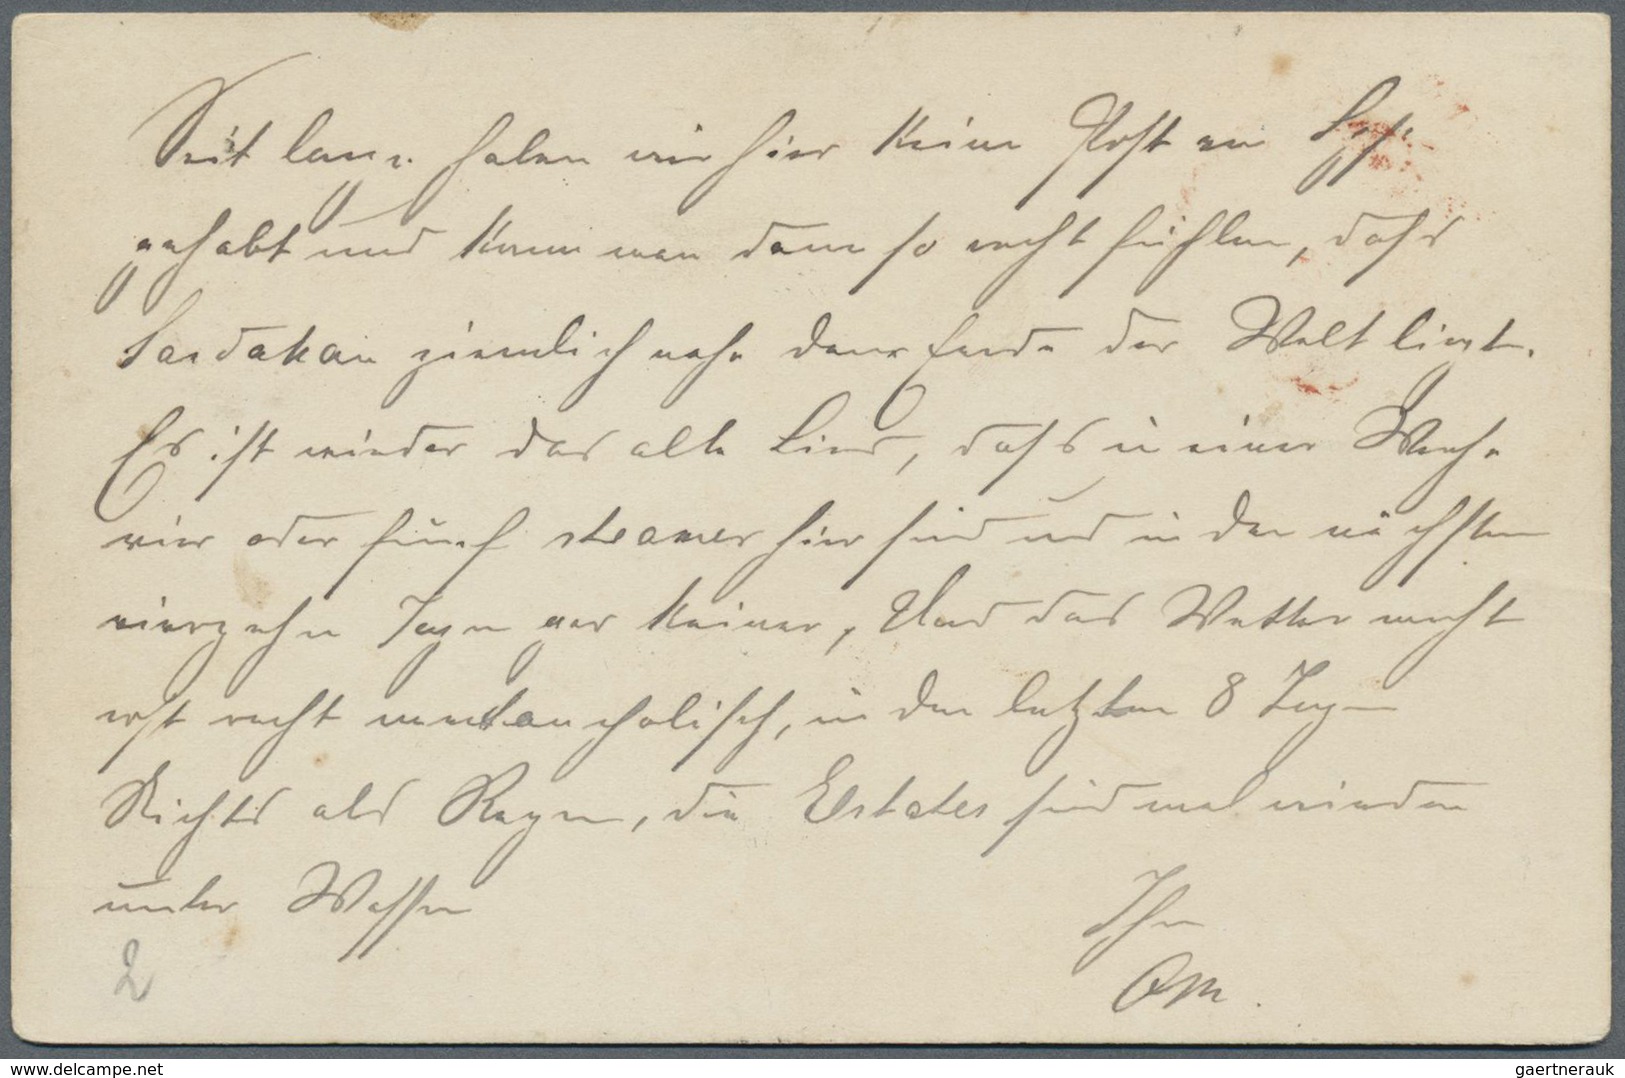 Seit lange haben wir hier keine Post von
gehabt und kann man dann so recht fühlen, dass
Sandakan ziemlich nahe dem Ende der Welt liegt.
Es ist wieder das alte Lied, dass in einer Woche
vier oder fünf steamer hier sind und in den nächsten
vierzehn Tagen gar keiner, Und das Wetter macht
erst recht melancholisch, in den letzten 8 Tagen
Nichts als Regen, die Estates sind mal wieder
unter Wasser
Ihr
OM.
2
delcampe.net
gaertnerauk